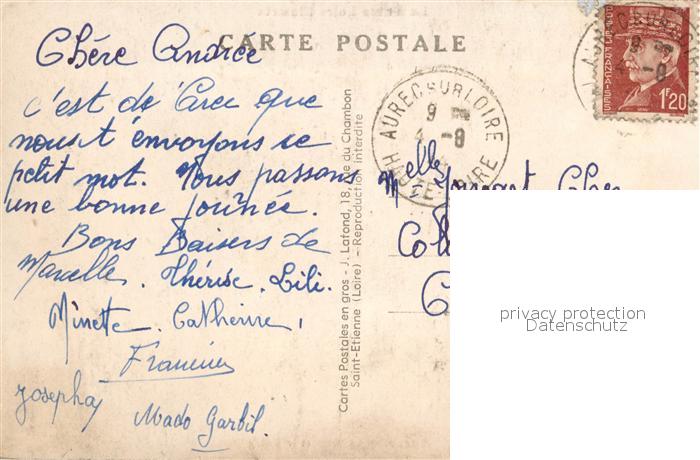 CARTE POSTALE
Chère Andrée
c'est de Aurec que
nous t'envoyons ce
petit mot. Nous passons
une bonne journée.
Bons Baisers de
Marcelle. Thérèse. Lili.
Minette. Catherine,
Francine
Josepha
Mado Garbil.
Cartes Postales en gros - J. Lafond, 18, rue du Chambon
Saint-Etienne (Loire) - Reproduction interdite
AUREC SUR LOIRE
9
4 -8
HAUTE LOIRE
POSTES FRANÇAISES
1F20
Melle
Col
privacy protection
Datenschutz